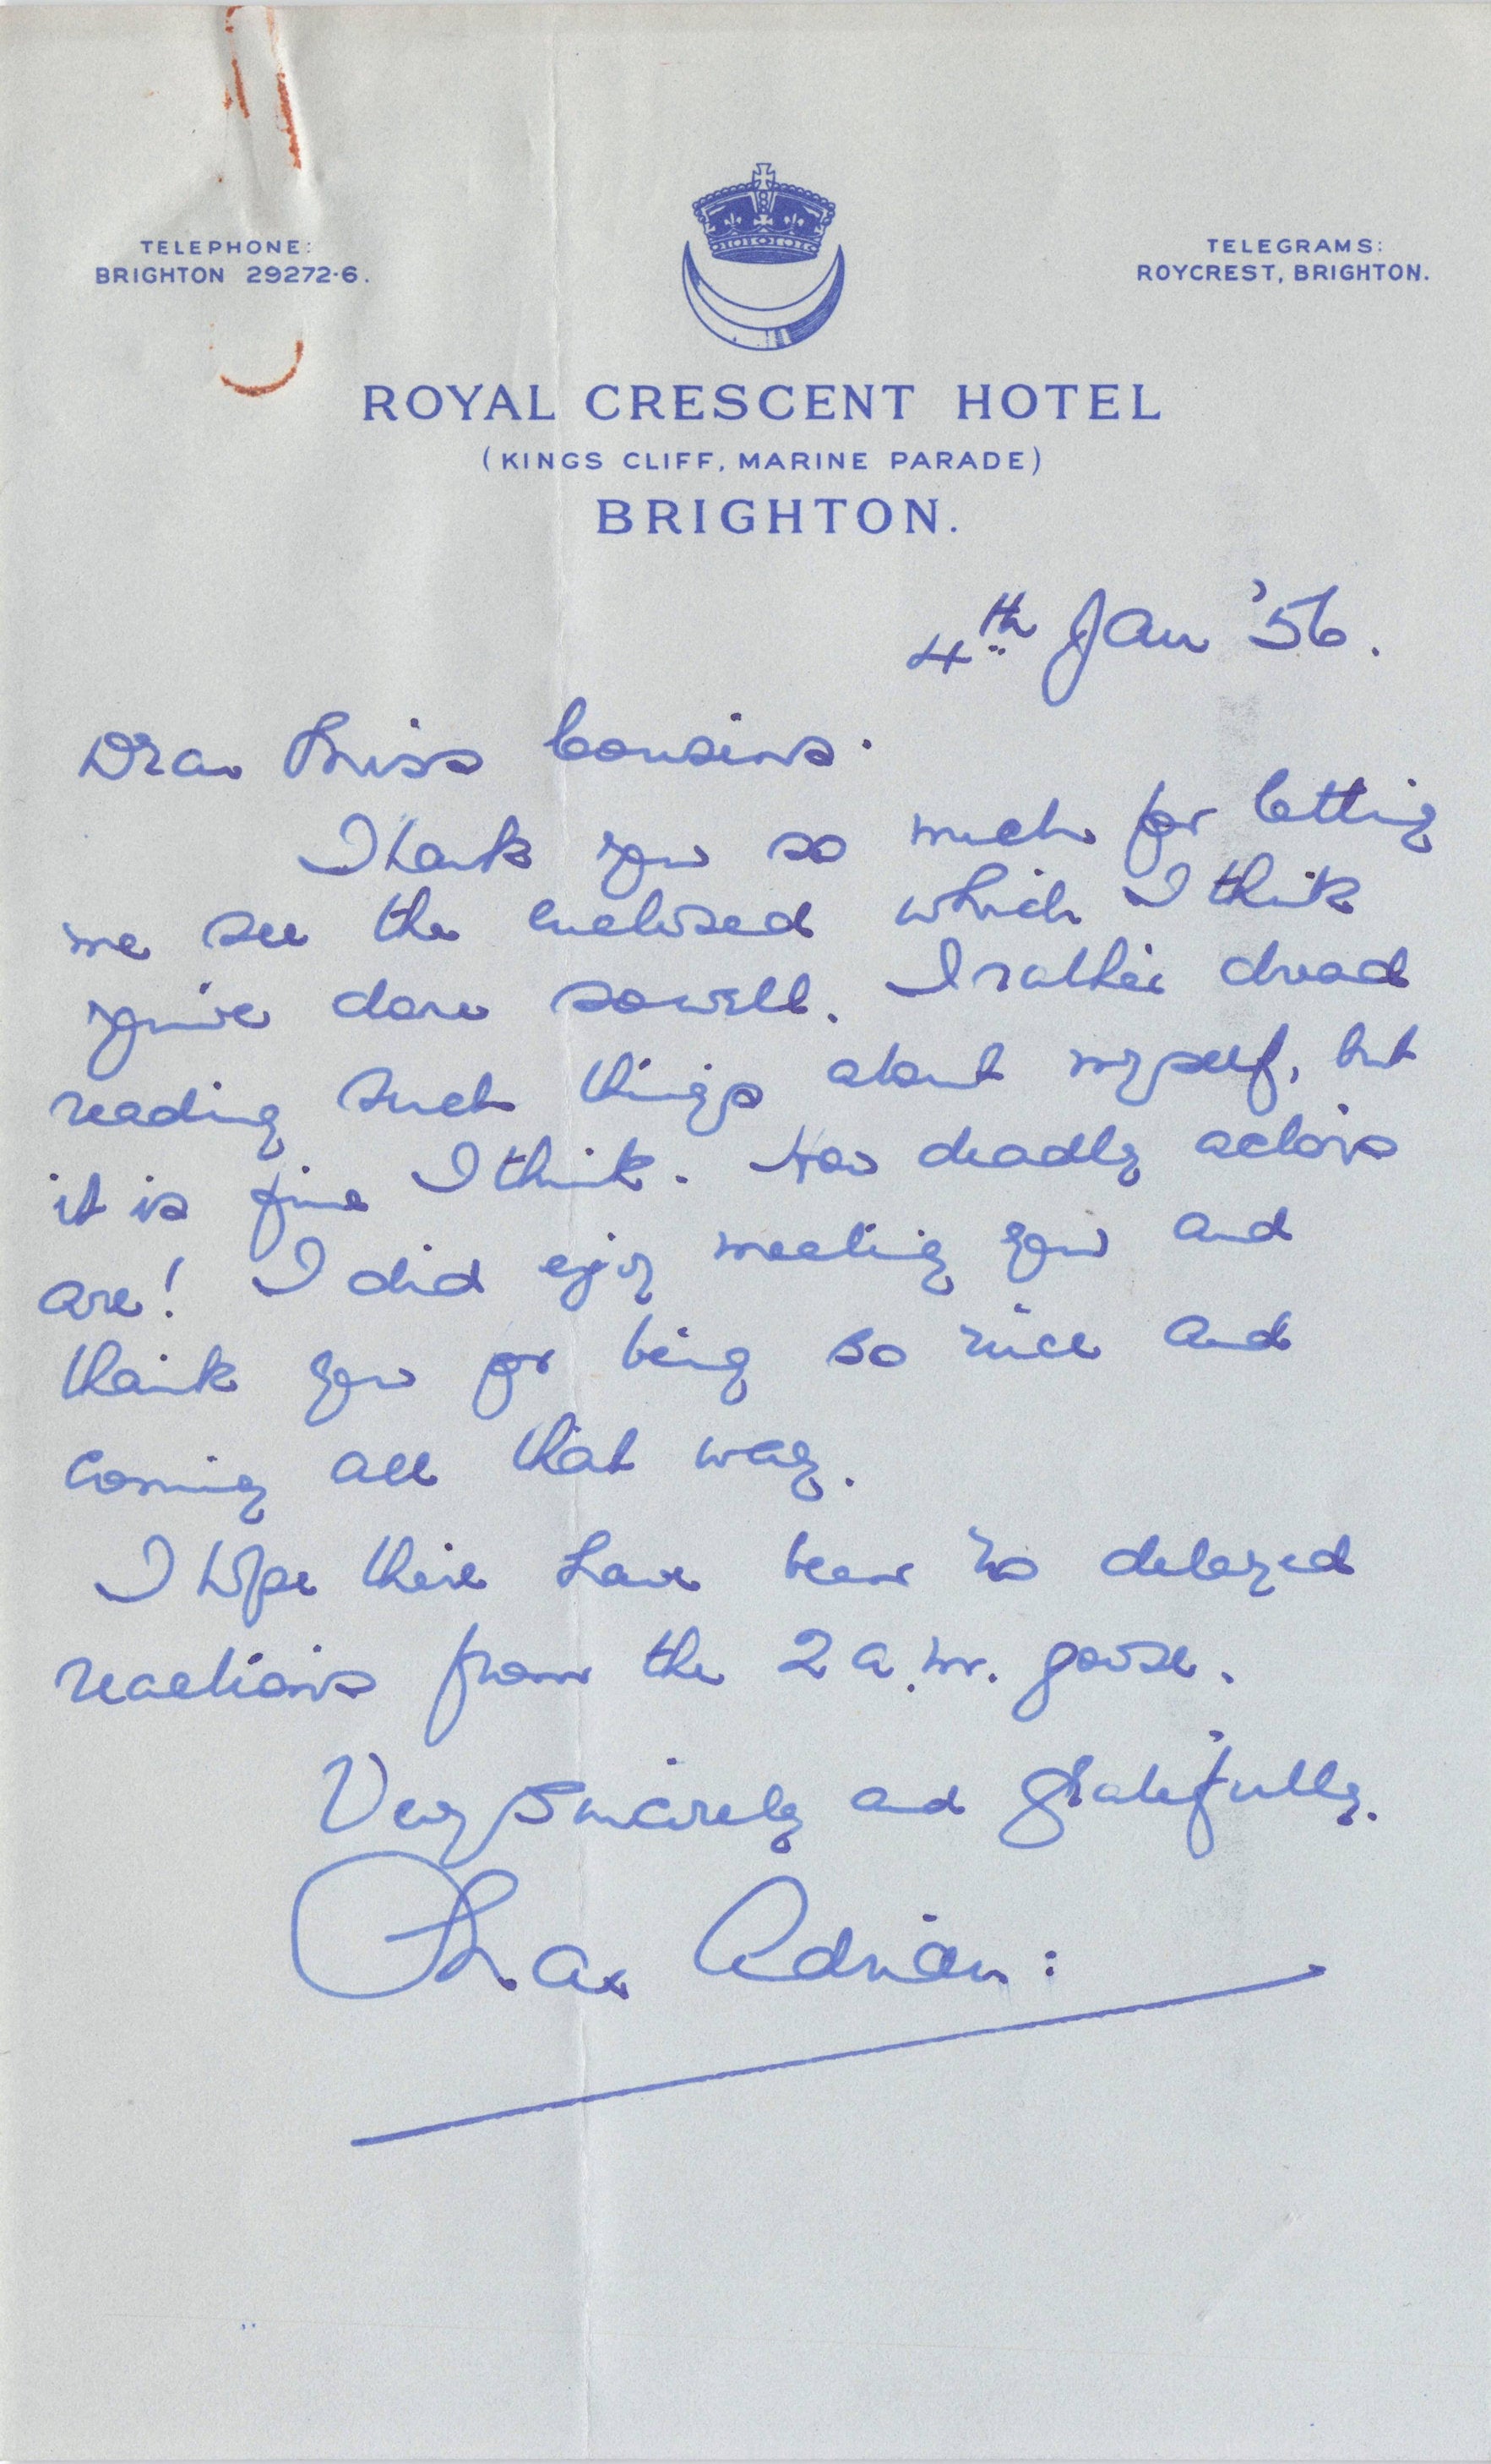 TELEPHONE:
BRIGHTON 29272·6.
TELEGRAMS:
ROYCREST, BRIGHTON.
ROYAL CRESCENT HOTEL
(KINGS CLIFF, MARINE PARADE)
BRIGHTON.
4th Jan '56.
Dear Miss Cousins.
Thank you so much for letting
me see the enclosed which I think
you've done so well. I rather dread
reading such things about myself, but
it is fine I think. How deadly actors
are! I did enjoy meeting you and
thank you for being so nice and
coming all that way.
I hope there have been no delayed
reactions from the 2 a.m. goose.
Very sincerely and gratefully.
Max Adrian: